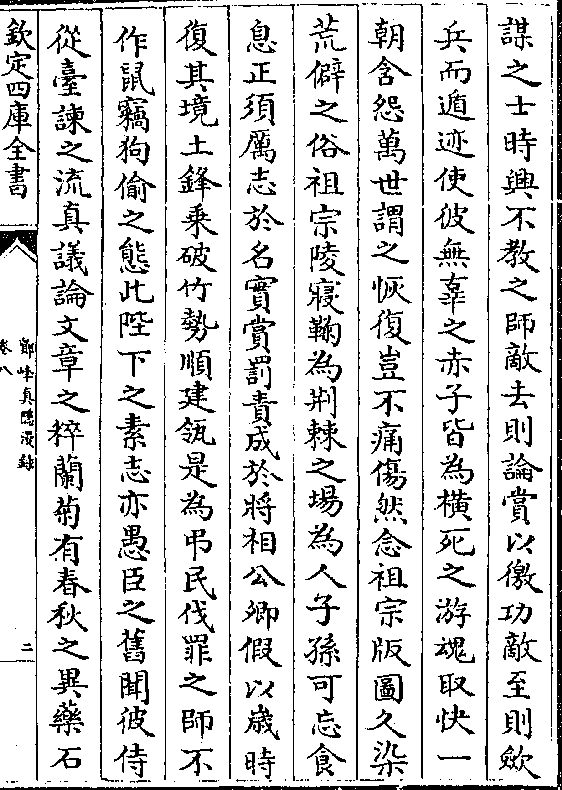 謀之士時興不教之師敵去則論賞以徼功敵至則斂
兵而遁迹使彼無辜之赤子皆為橫死之游魂取快一
朝含怨萬世謂之恢復豈不痛傷然念祖宗版圖久染
荒僻之俗祖宗陵寢鞠為荆棘之場為人子孫可忘食
息正須厲志於名實賞罰責成於將相公卿假以歲時
復其境土鋒乘破竹勢順建瓴是為弔民伐罪之師不
作鼠竊狗偷之態此陛下之素志亦愚臣之舊聞彼侍
從臺諫之流真議論文章之粹蘭菊有春秋之異藥石
欽定四庫全書
鄮峰真隱漫錄
卷八
二